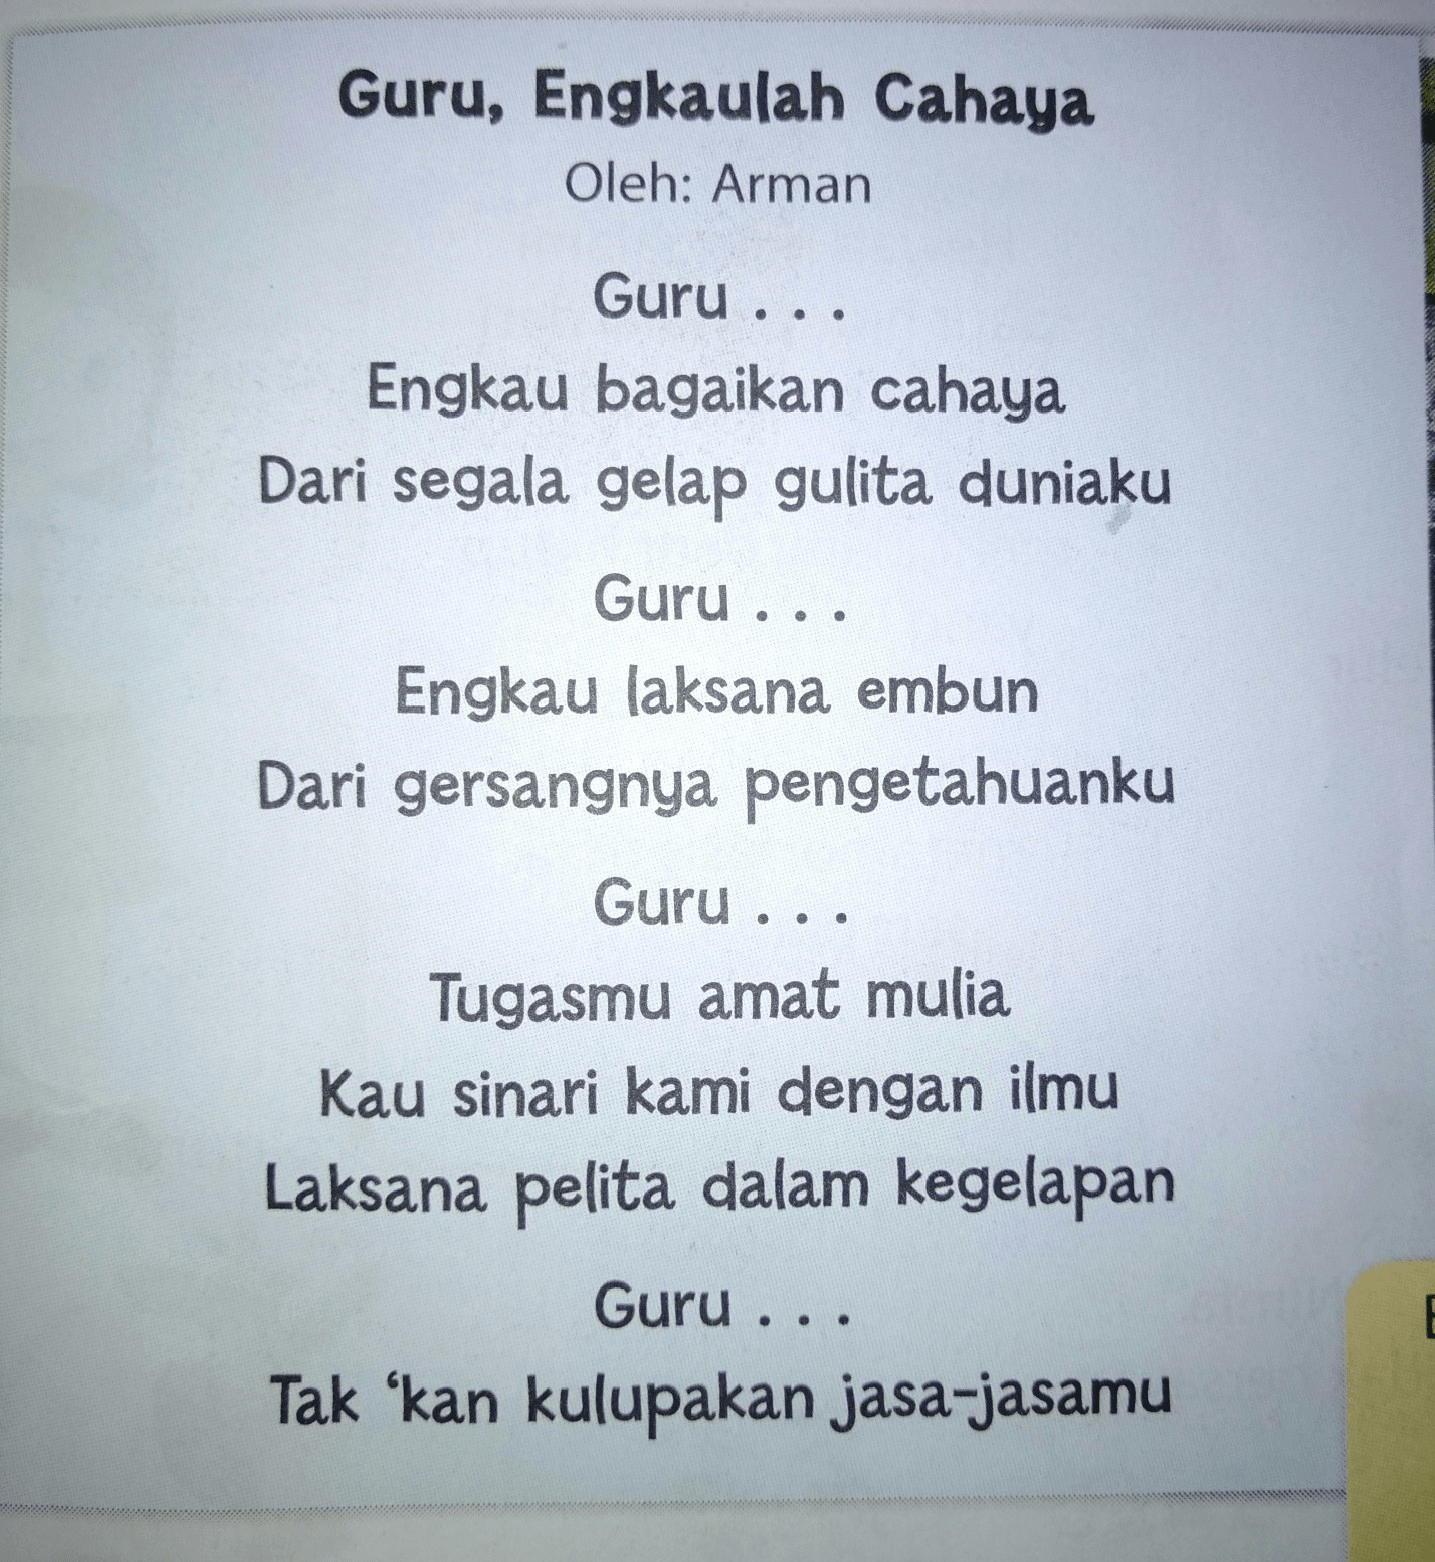 Guru, Engkaulah Cahaya
Oleh: Arman
Guru . . .
Engkau bagaikan cahaya
Dari segala gelap gulita duniaku
Guru . . .
Engkau laksana embun
Dari gersangnya pengetahuanku
Guru . . .
Tugasmu amat mulia
Kau sinari kami dengan ilmu
Laksana pelita dalam kegelapan
Guru . . .
Tak ‘kan kulupakan jasa-jasamu